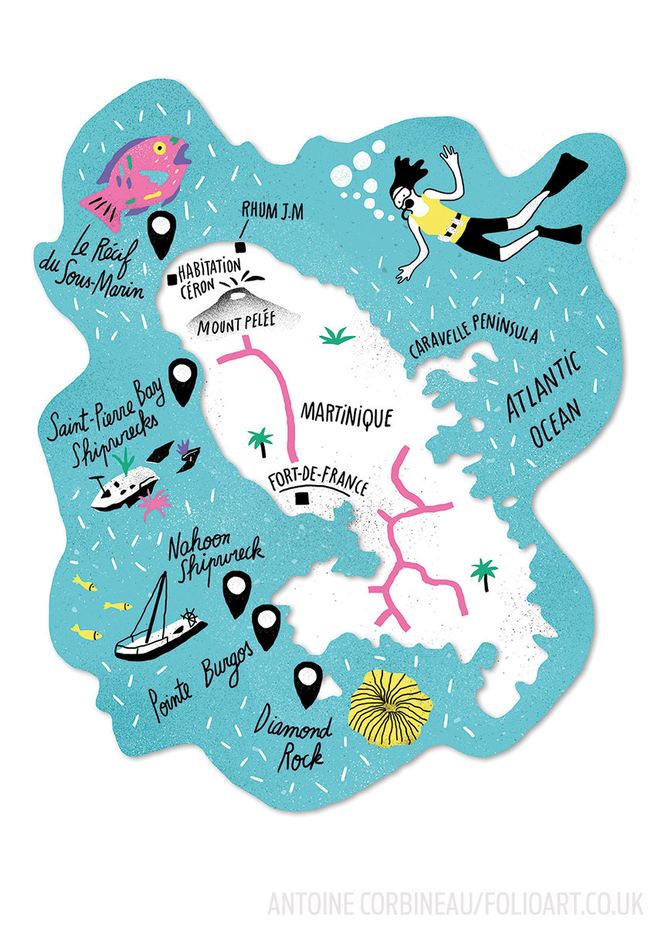 RHUM J.M
Le Récif
du Sous-Marin
HABITATION
CÉRON
MOUNT PELÉE
CARAVELLE PENINSULA
ATLANTIC
OCEAN
Saint-Pierre Bay
Shipwrecks
MARTINIQUE
FORT-DE-FRANCE
Nahoon
Shipwreck
Pointe Burgos
Diamond
Rock
ANTOINE CORBINEAU/FOLIOART.CO.UK